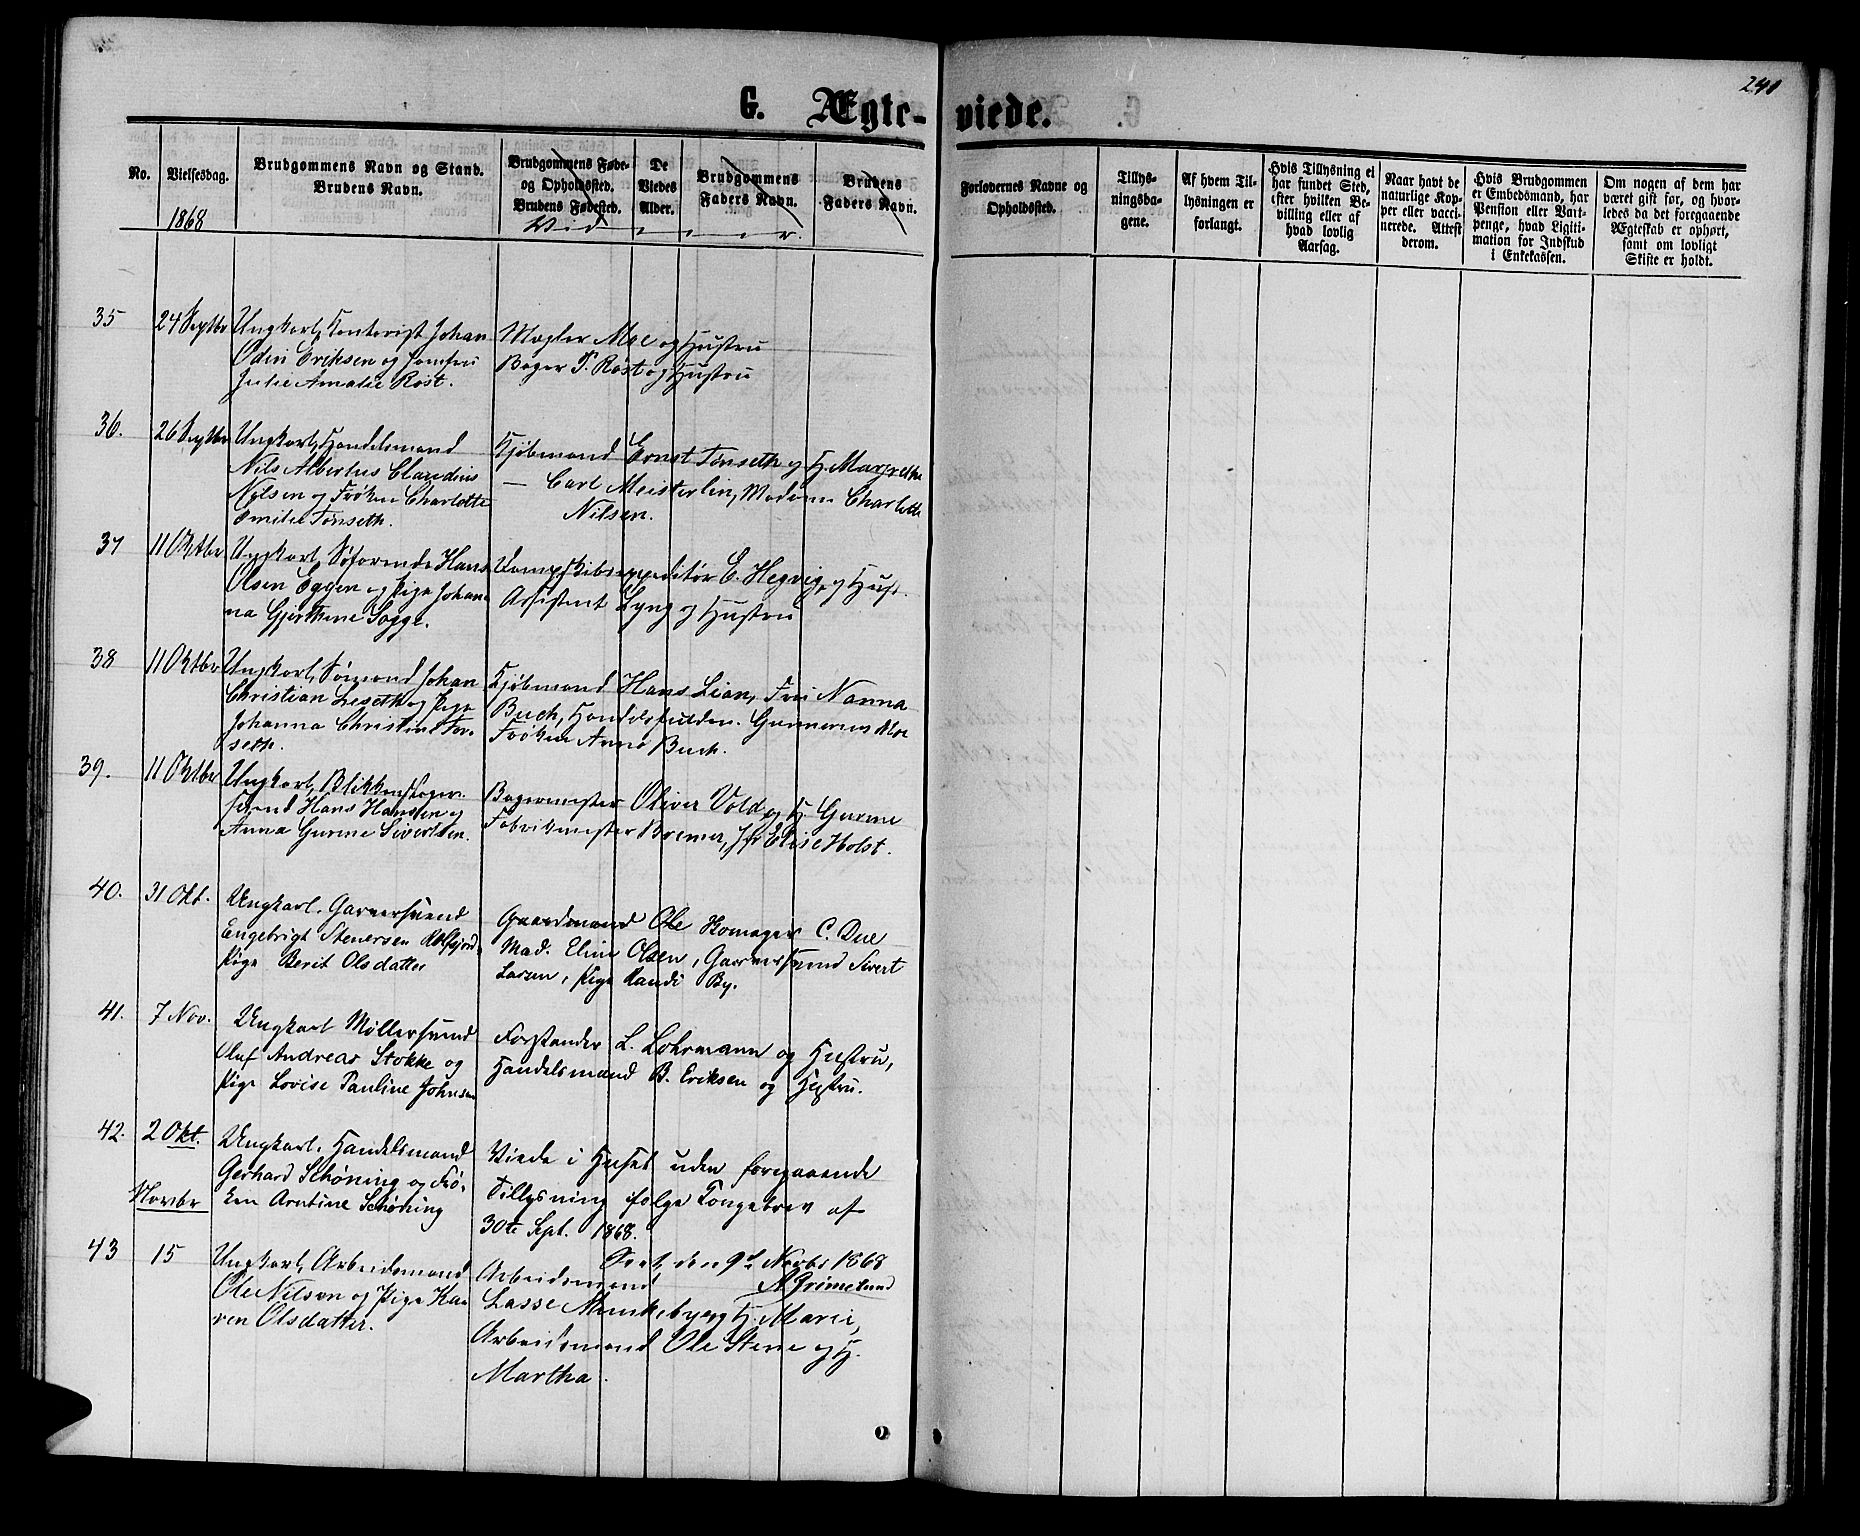 240
G. Ægte-viede.
No.
Vielsesdag.
Brudgommens Navn og Stand.
Brudens Navn.
Brudgommens Føde-
og Opholdssted.
Brudens Fødested.
De
Viedes
Alder.
Brudgommens
Faders Navn.
Brudens
Faders Navn.
Forlovernes Navne og
Opholdssted.
Tillys-
ningsda-
gene.
Af hvem Til-
lysningen er
forlangt.
Hvis Tillysning ei
har fundet Sted,
efter hvilken Be-
villing eller af
hvad lovlig
Aarsag.
Naar havt de
naturlige Kop-
per eller vacci-
nerede. Attest
derom.
Hvis Brudgommen
er Embedsmand, har
Pension eller Vart-
penge, hvad Legiti-
mation for Indskud
i Enkekassen.
Om nogen af dem har
været gift før, og hvor-
ledes da det foregaaende
Ægteskab er ophørt,
samt om lovligt
Skifte er holdt.
1868
Vidner.
35
24 Septbr
Ungkarl, Kontorist Johan
Odin Eriksen og Jomfru
Julie Amalie Rost.
Mægler Moe og Hustru
Bager P. Rost og Hustru
36.
26 Septbr
Ungkarl, Handelsmand
Nils Albertus Claudius
Nilsen og Frøken Charlotte
Emilie Tønseth.
Kjøbmand Ernst Tønseth og H. Margrethe
— Carl Meisterlin, Madame Charlotte
Nilsen.
37
11 Oktbr
Ungkarl, Søfarende Hans
Olsen Eggen og Pige Johan-
na Gjertine Sagge.
Dampskibsexpeditør E. Hegvig og Hust.
Assistent Lyng og Hustru
38
11 Oktbr
Ungkarl, Sømand Johan
Christian Leseth og Pige
Johanna Christine For-
seth.
Kjøbmand Hans Lian, Fru Nanna
Buch, Handelsfuldm. Gunnerius Moe
Frøken Anna Buch.
39.
11 Oktbr
Ungkarl, Blikkenslager-
svend Hans Hansen og
Anna Gurine Sivertsen.
Bagermester Oliver Vold og H. Gurine
Fabrikmester Bremer, Jfr Elise Holst.
40.
31 Okt.
Ungkarl. Garversvend
Engebrigt Stenersen
Pige Berit Olsdatter
Gaardmand Ole C. Due
Mad. Eline Olsen, Garversvend Sivert
Larsen, Pige Randi By.
41.
7 Nov.
Ungkarl Møllersvend
Oluf Andreas Stokke og
Pige Lovise Pauline Johnsen
Forstander L. Lohrmann og Hustru,
Handelsmand B. Eriksen og Hustru.
42.
2 Okt.
Ungkarl. Handelsmand
Gerhard Schøning og Frø-
ken Arntine Schøning
Viede i Huset uden foregaaende
Tillysning ifølge Kongebrev af
30te Sept. 1868.
Novbr
43
15
Ungkarl, Arbeidsmand
Ole Nilsen og Pige Ka-
ren Olsdatter.
Seet, den 9d Novbr 1868
A Grimelund
Arbeidsmand
Lasse Munkeby og H. Marie,
Arbeidsmand Ole Stene og H.
Martha.